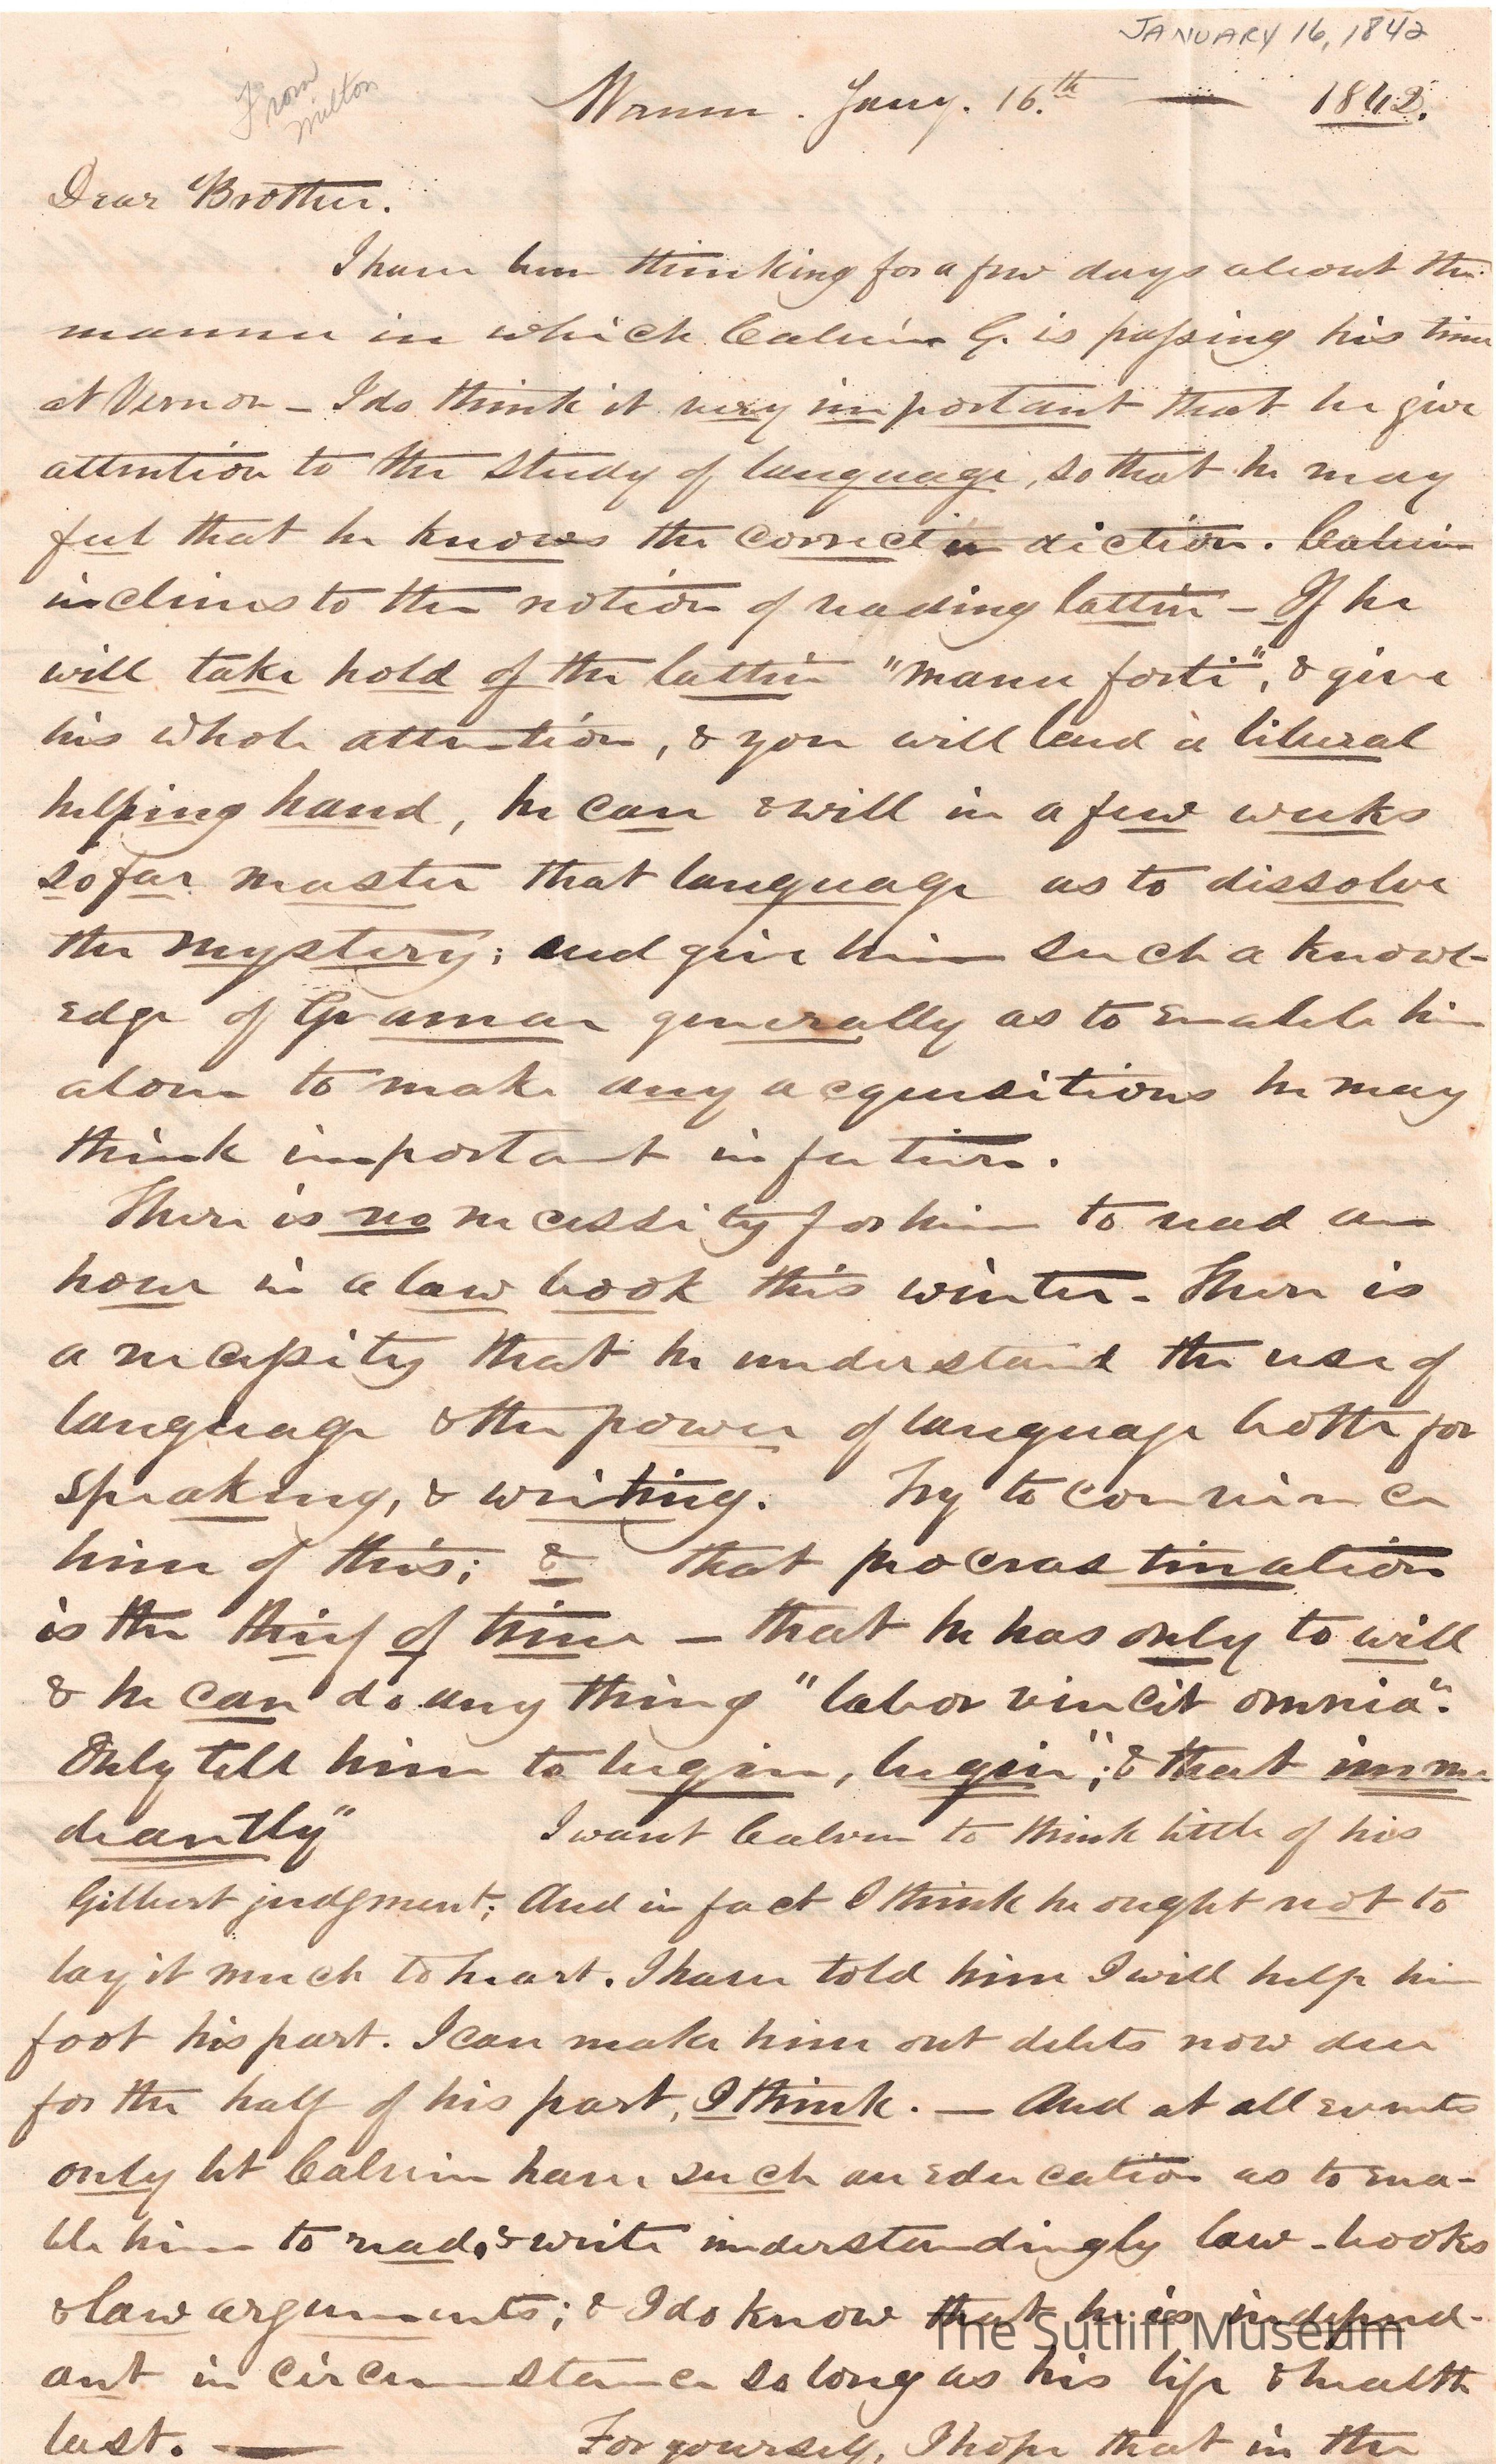 JANUARY 16, 1842
From
Milton
Warren. Jany. 16.th — 1842.
Dear Brother.
I have been thinking for a few days about the
manner in which Calvin G. is passing his time
at Vernon – I do think it very important that he give
attention to the study of language, so that he may
feel that he knows the correct in diction. Calvin
inclines to the notion of reading lattin – If he
will take hold of the lattin "manu forti", & give
his whole attention, & you will lend a liberal
helping hand, he can & will in a few weeks
so far master that language as to dissolve
the mystery; and give him such a knowl-
edge of Gramar generally as to enable him
alone to make any acquisitions he may
think important in future.
There is no necessity for him to read an
hour in a law book this winter. There is
a necessity that he understand the use of
language & the power of language both for
speaking, & writing. Try to convince
him of this; & that procrastination
is the thief of time – that he has only to will
& he can do any thing "labor vincit omnia".
Only tell him to begin, begin"; & that imme
diantly" I want Calvin to think little of his
Gilbert judgment; And in fact I think he ought not to
lay it much to heart. I have told him I will help him
foot his part. I can make him out debts now due
for the half of his part, I think. — And at all events
only let Calvin have such an education as to ena-
ble him to read, & write understandingly law-books
& law arguments; & I do know that he is independ-
ant in circumstance so long as his life & health
last. — For yourself, I hope that in the
The Sutliff Museum